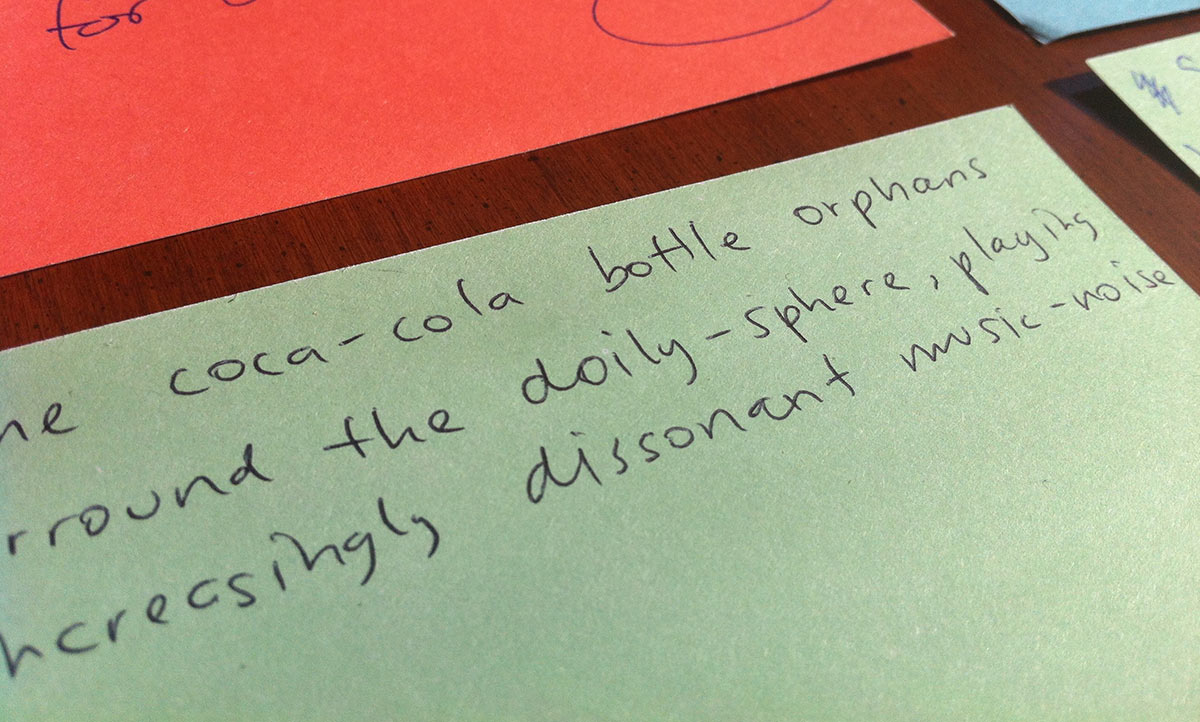 for
he coca-cola bottle orphans
rround the doily-sphere, playing
ncreasingly dissonant music-noise